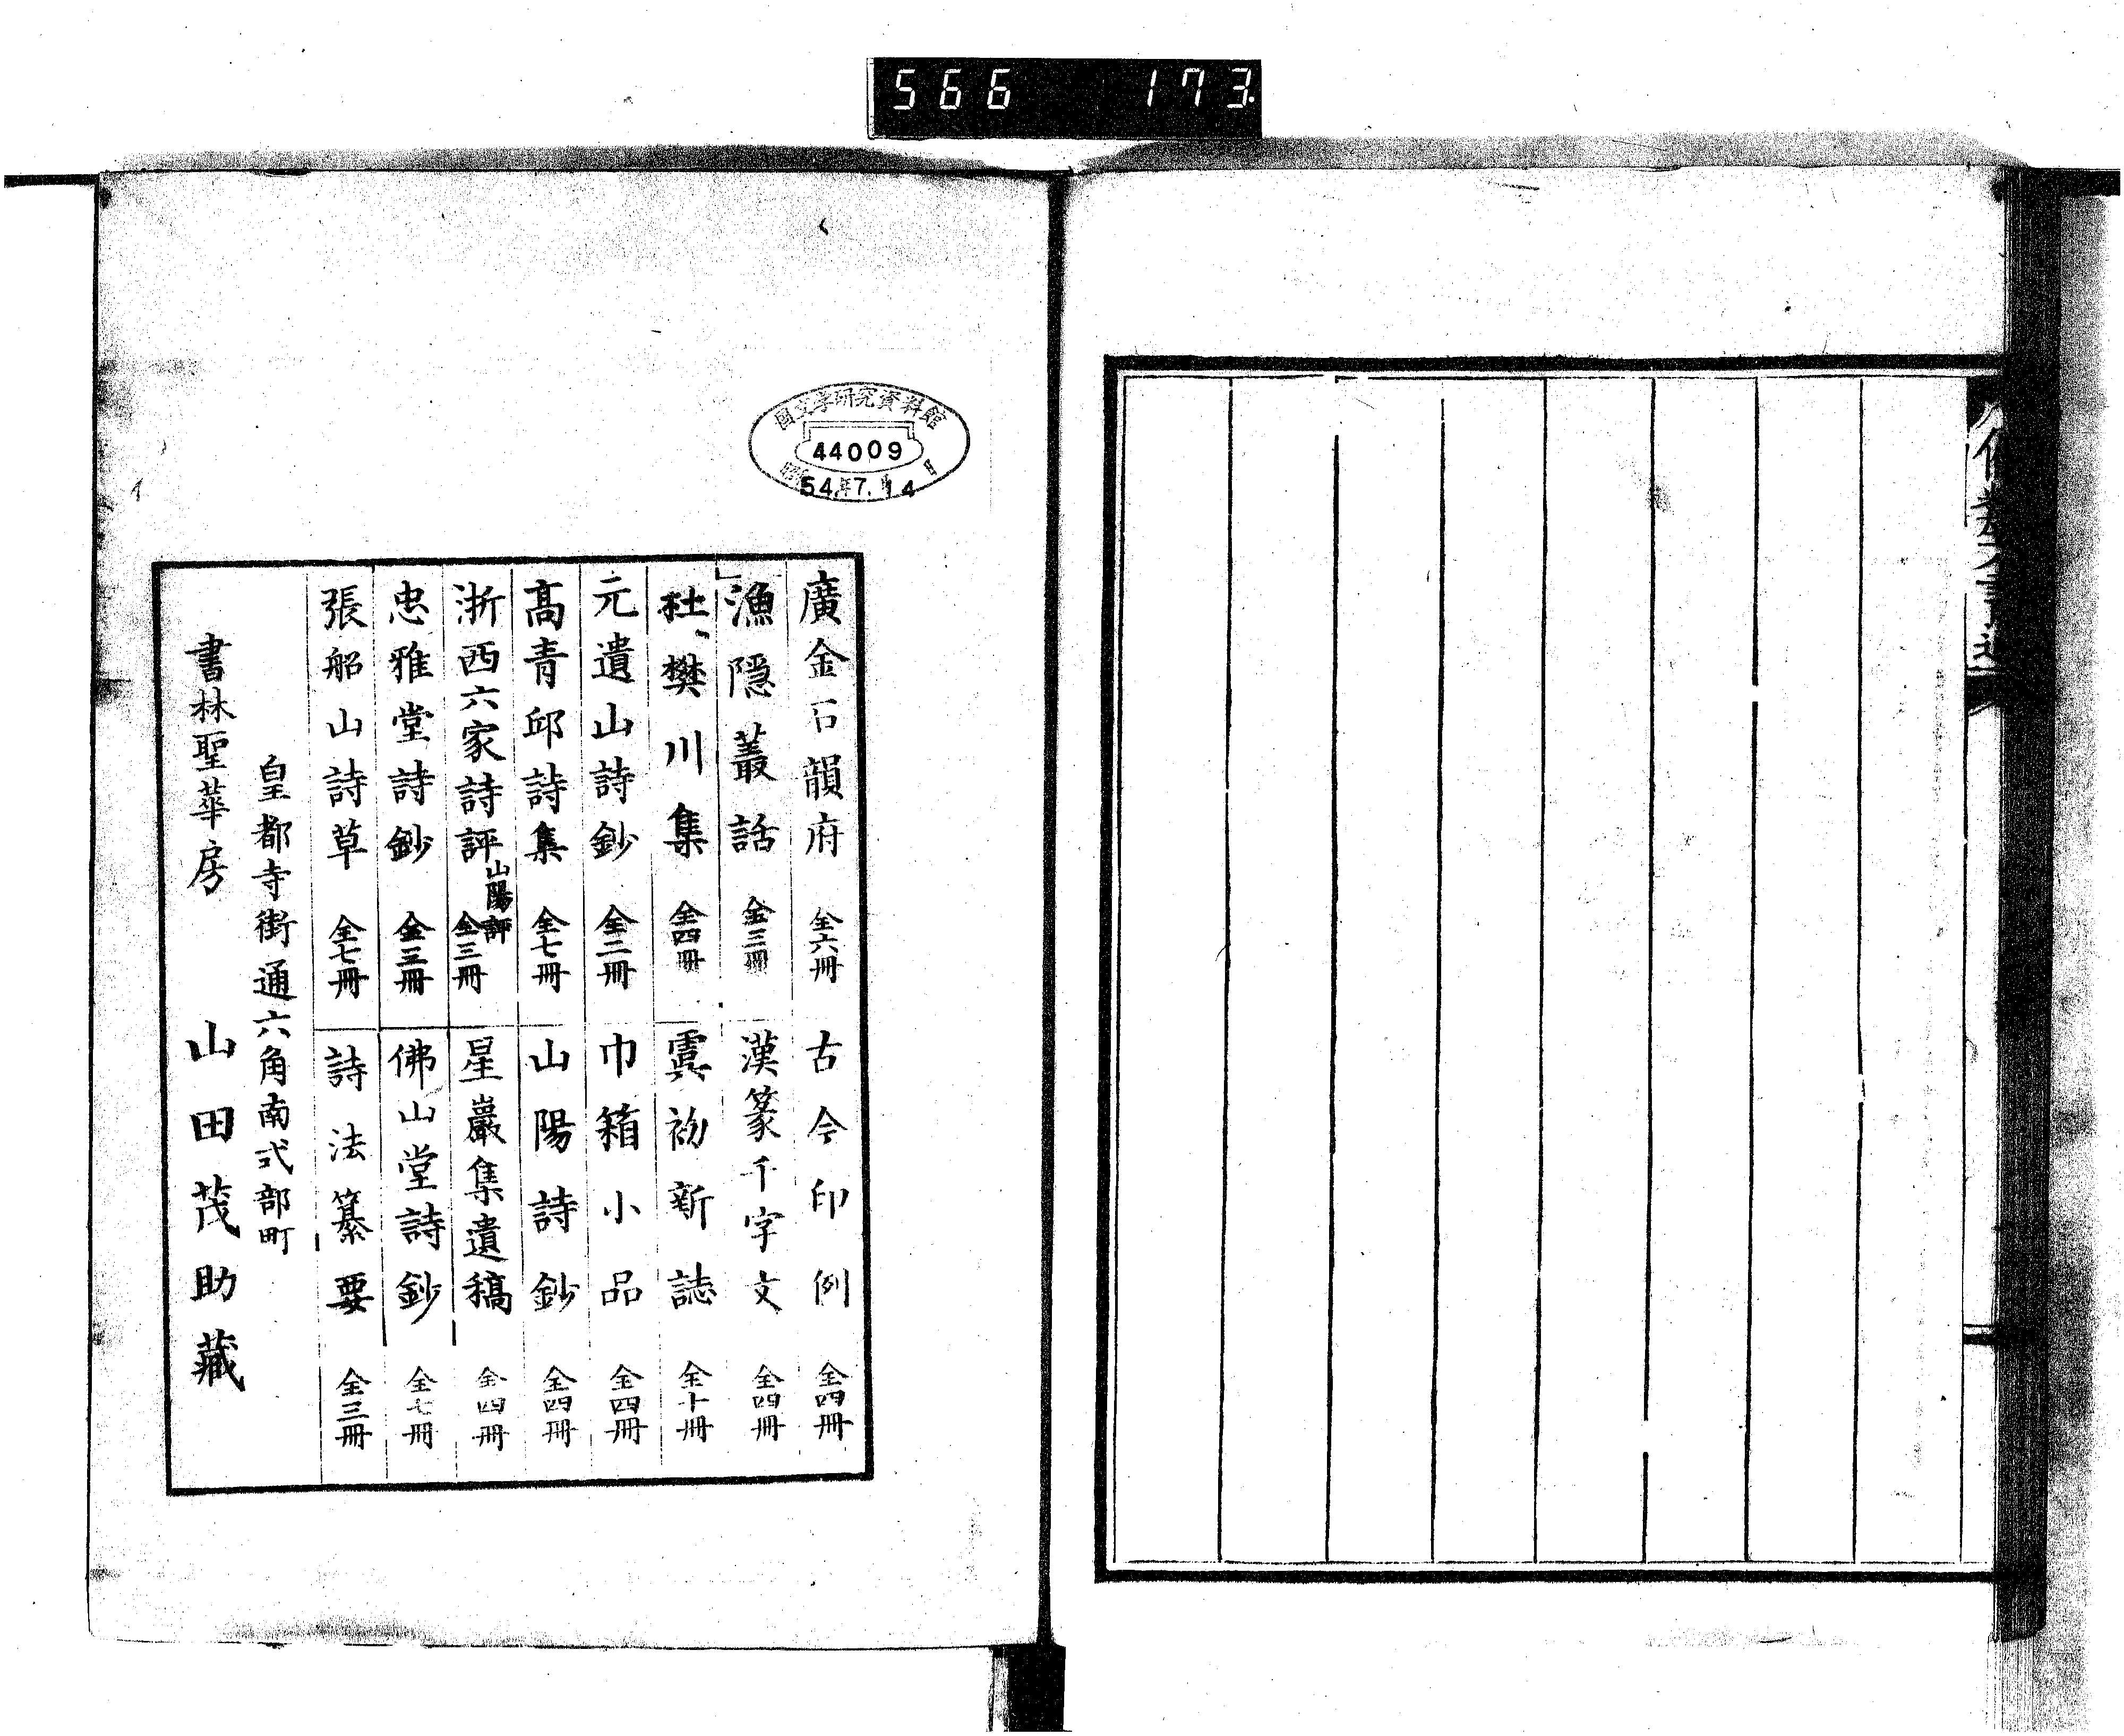 566 173
國文学研究資料館
44009
54年7月14日
廣金石韻府 全六冊 古今印例 全四冊
漁隠叢話 全三冊 漢篆千字文 全四冊
杜樊川集 全四冊 虞初新誌 全十冊
元遺山詩鈔 全二冊 巾箱小品 全四冊
髙青邱詩集 全七冊 山陽詩鈔 全四冊
浙西六家詩評 山陽評 全三冊 星巖集遺稿 全四冊
忠雅堂詩鈔 全三冊 佛山堂詩鈔 全七冊
張船山詩草 全七冊 詩法纂要 全三冊
皇都寺街通六角南式部町
書林聖華房 山田茂助藏